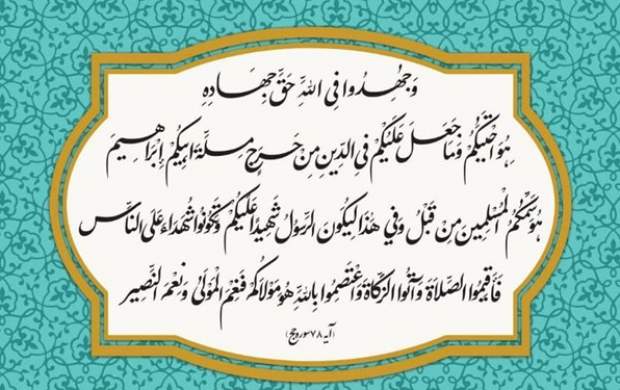 وَجٰهِدُوا فِی اللهِ حَقَّ جِهَادِهِ
هُوَ اجْتَبٰیكُمْ وَمَا جَعَلَ عَلَیْكُمْ فِی الدِّینِ مِنْ حَرَجٍ مِلَّةَ اَبِیكُمْ إِبْرَاهِیمَ
هُوَ سَمّٰكُمُ الْمُسْلِمِینَ مِنْ قَبْلُ وَفِی هٰذَا لِیَكُونَ الرَّسُولُ شَهِیدًا عَلَیْكُمْ وَتَكُونُوا شُهَدَاءَ عَلَی النَّاسِ
فَأَقِیمُوا الصَّلَاةَ وَآتُوا الزَّكَاةَ وَاعْتَصِمُوا بِاللهِ هُوَ مَوْلَاكُمْ فَنِعْمَ الْمَوْلَیٰ وَنِعْمَ النَّصِیر
(آیه ۷۸ سوره حج)